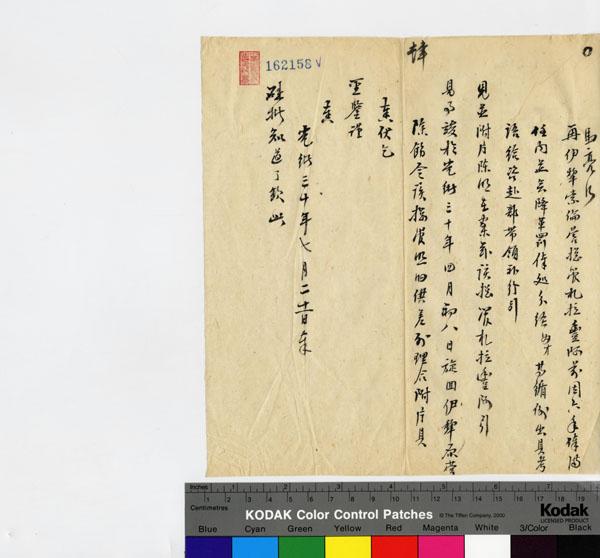 馬亮片
再伊犂索倫營總管札拉豐阿前因六年俸滿
任內並無降革罰俸處分經奴才等循例出具考
語給咨赴部帶領引
見並附片陳明在案茲該總管札拉豐阿引
見事竣於光緒三十年四月初八日旋回伊犂原營
除飭令該總管照旧供差外理合附片具
奏伏乞
聖鑒謹
奏
光緒三十年七月二十一日奉
硃批知道了欽此
162158
Inches
1 2 3 4 5 6 7
Centimetres
1 2 3 4 5 6 7 8 9 10 11 12 13 14 15 16 17 18 19
KODAK Color Control Patches
© The Tiffen Company, 2000
Kodak
LICENSED PRODUCT
Blue Cyan Green Yellow Red Magenta White 3/Color Black